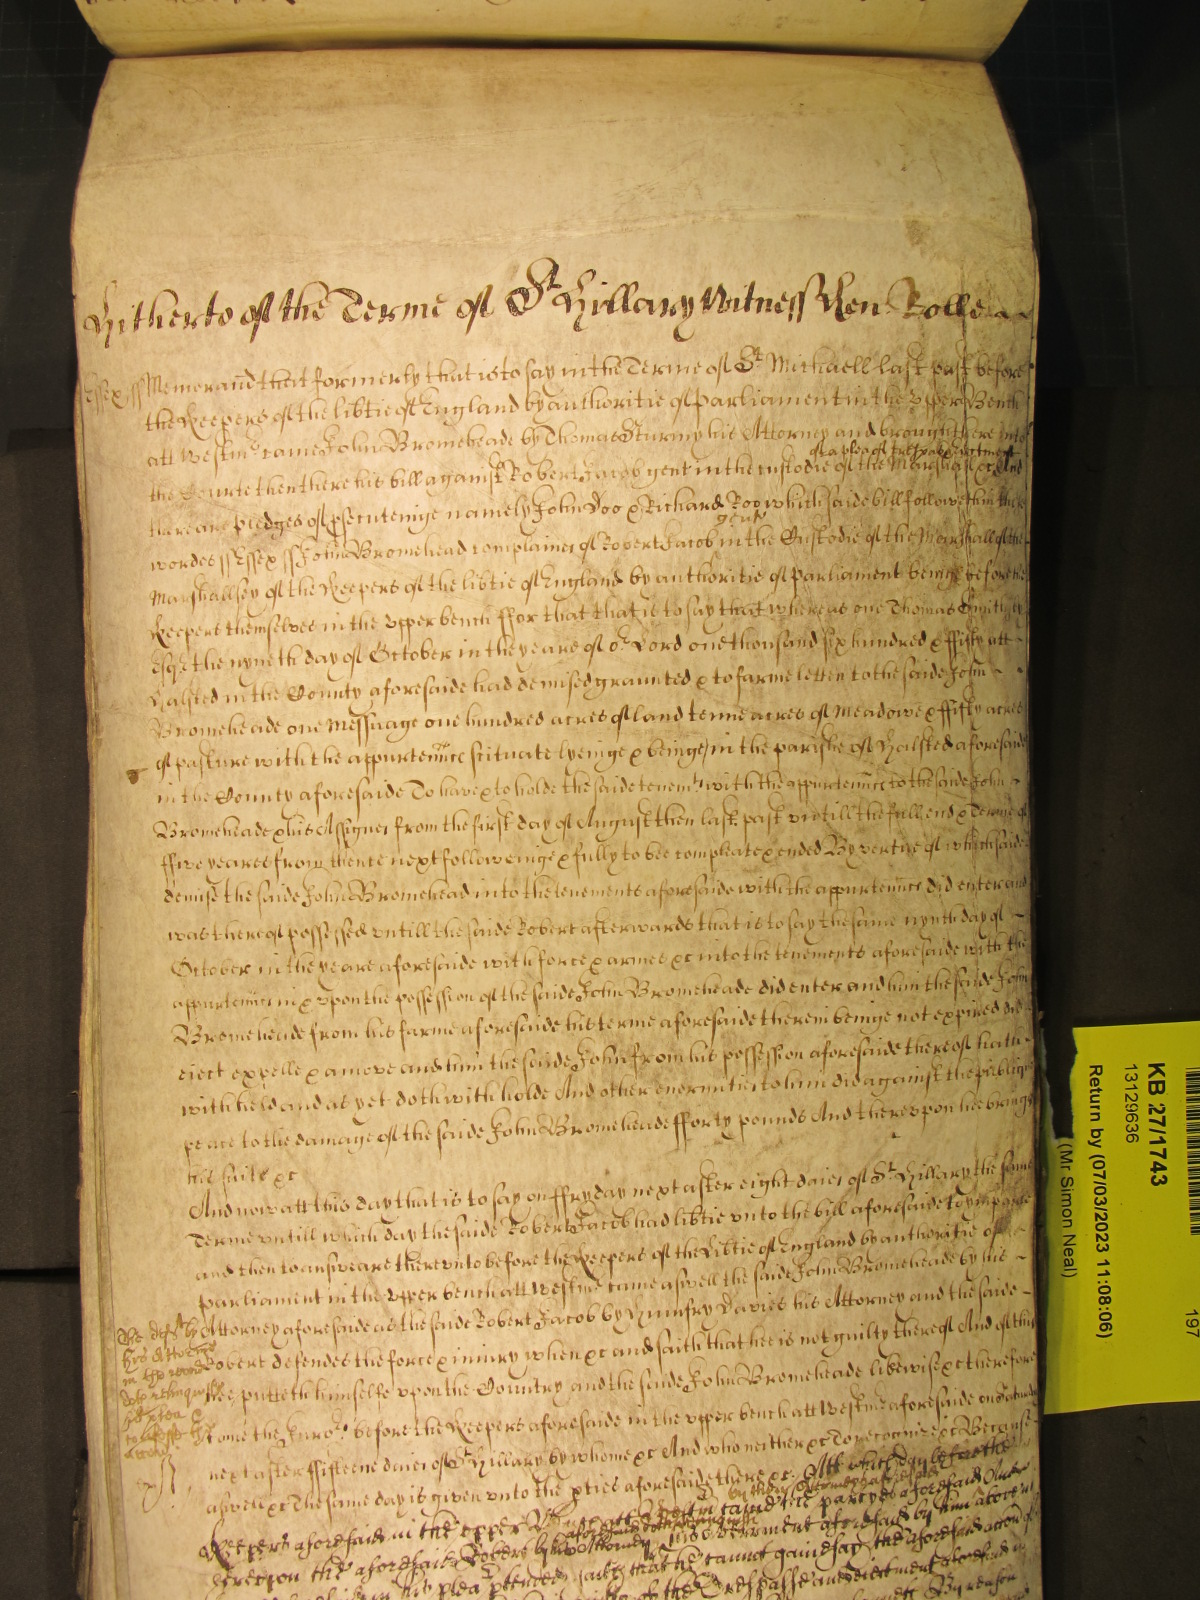 Hitherto of the Terme of St Hillary Witness Hen Rolle
Essex ss Memorand that formerly that is to say in the Terme of St Michaell last past before
the Keepers of the libtie of England by authoritie of parliament in the upper Bench
att Westmr came John Bromeheade by Thomas Sturmy his Attorney and brought here into
of a plea of trespas & eiectment
the Courte then there his bill against Robert Jacob gent in the custodie of the Marshall &c And
there are pledges of psecuteinge namely John Doo & Richard Roo which saide bill followeth in these
gent
wordes ss Essex ss John Bromehead complaines of Robert Jacob in the Custodie of the Marshall of the
Marshallsey of the Keepers of the libtie of England by authoritie of parliament beinge before the
Keepers themselves in the upper bench ffor that that is to say that whereas one Thomas Smith
Esqr the nyneth day of October in the yeare of or Lord one thousand six hundred & ffifty att
Halsted in the County aforesaide had demised graunted & to farme letten to the saide John
Bromeheade one Messuage one hundred acres of land tenne acres of Meadowe & ffifty acres
of pasture with the appurtennces scituate lyeinge & beinge in the parishe of Halsted aforesaid
in the County aforesaide To have & to holde the saide tenemts with the appurtennces to the saide John
Bromeheade & his Assignes from the first day of August then last past untill the full end & Terme of
ffive yeares from thence next followeinge & fully to bee compleate & ended By vertue of which saide
demise the saide John Bromehead into the tenements aforesaide with the appurtennces did enter and
was thereof possessed untill the saide Robert afterwards that is to say the same nynth day of
October in the yeare aforesaide with force & armes &c into the tenements aforesaide with the
appurtennces in & upon the possession of the saide John Bromeheade did enter and him the saide John
Bromeheade from his farme aforesaide his terme aforesaide therein beinge not expired did
eiect expelle & amove and him the saide John from his possession aforesaide thereof hath
withheld and as yet doth withholde And other enormities to him did against the publique
peace to the damage of the saide John Bromeheade fforty pounds And thereupon hee brings
his suite &c
And now att this day that is to say on ffryday next after eight daies of St Hillary the same
Terme untill which day the saide Robert Jacob had libtie unto the bill aforesaide to imparle
and then to answeare thereunto before the Keepers of the Libtie of England by authoritie of
parliament in the upper bench att Westmr came aswell the saide John Bromeheade by his
Attorney aforesaide as the saide Robert Jacob by Humfry Davies his Attorney and the saide
Robert defendes the force & iniury when &c and saith that hee is not guilty thereof And of this
hee putteth himselfe upon the Country and the saide John Bromeheade likewise &c therefore
The defts by
his Attorney
in this
doth relinquish
his plea
come the Jurors before the Keepers aforesaide in the upper bench att Westmr aforesaide on Saturday
next after ffifteene daies of St Hillary by whome &c And who neither &c To recognize &c Because
aswell &c The same day is given unto the pties aforesaide there &c. Att which day before the
Keepers aforesaid in the upper Bench att Westmr came the partyes aforesaid
by their Attorneyes aforesaid And
hereupon the aforesaid Robert by his Attorney aforesaid
relinquishing his plea pleaded saith that he cannot gainesay the aforesaid accon of
the Trespasse and Eiectment aforesaid
By reason
KB 27/1743
13129636
Return by (07/03/2023 11:08:06)
(Mr Simon Neal)
197